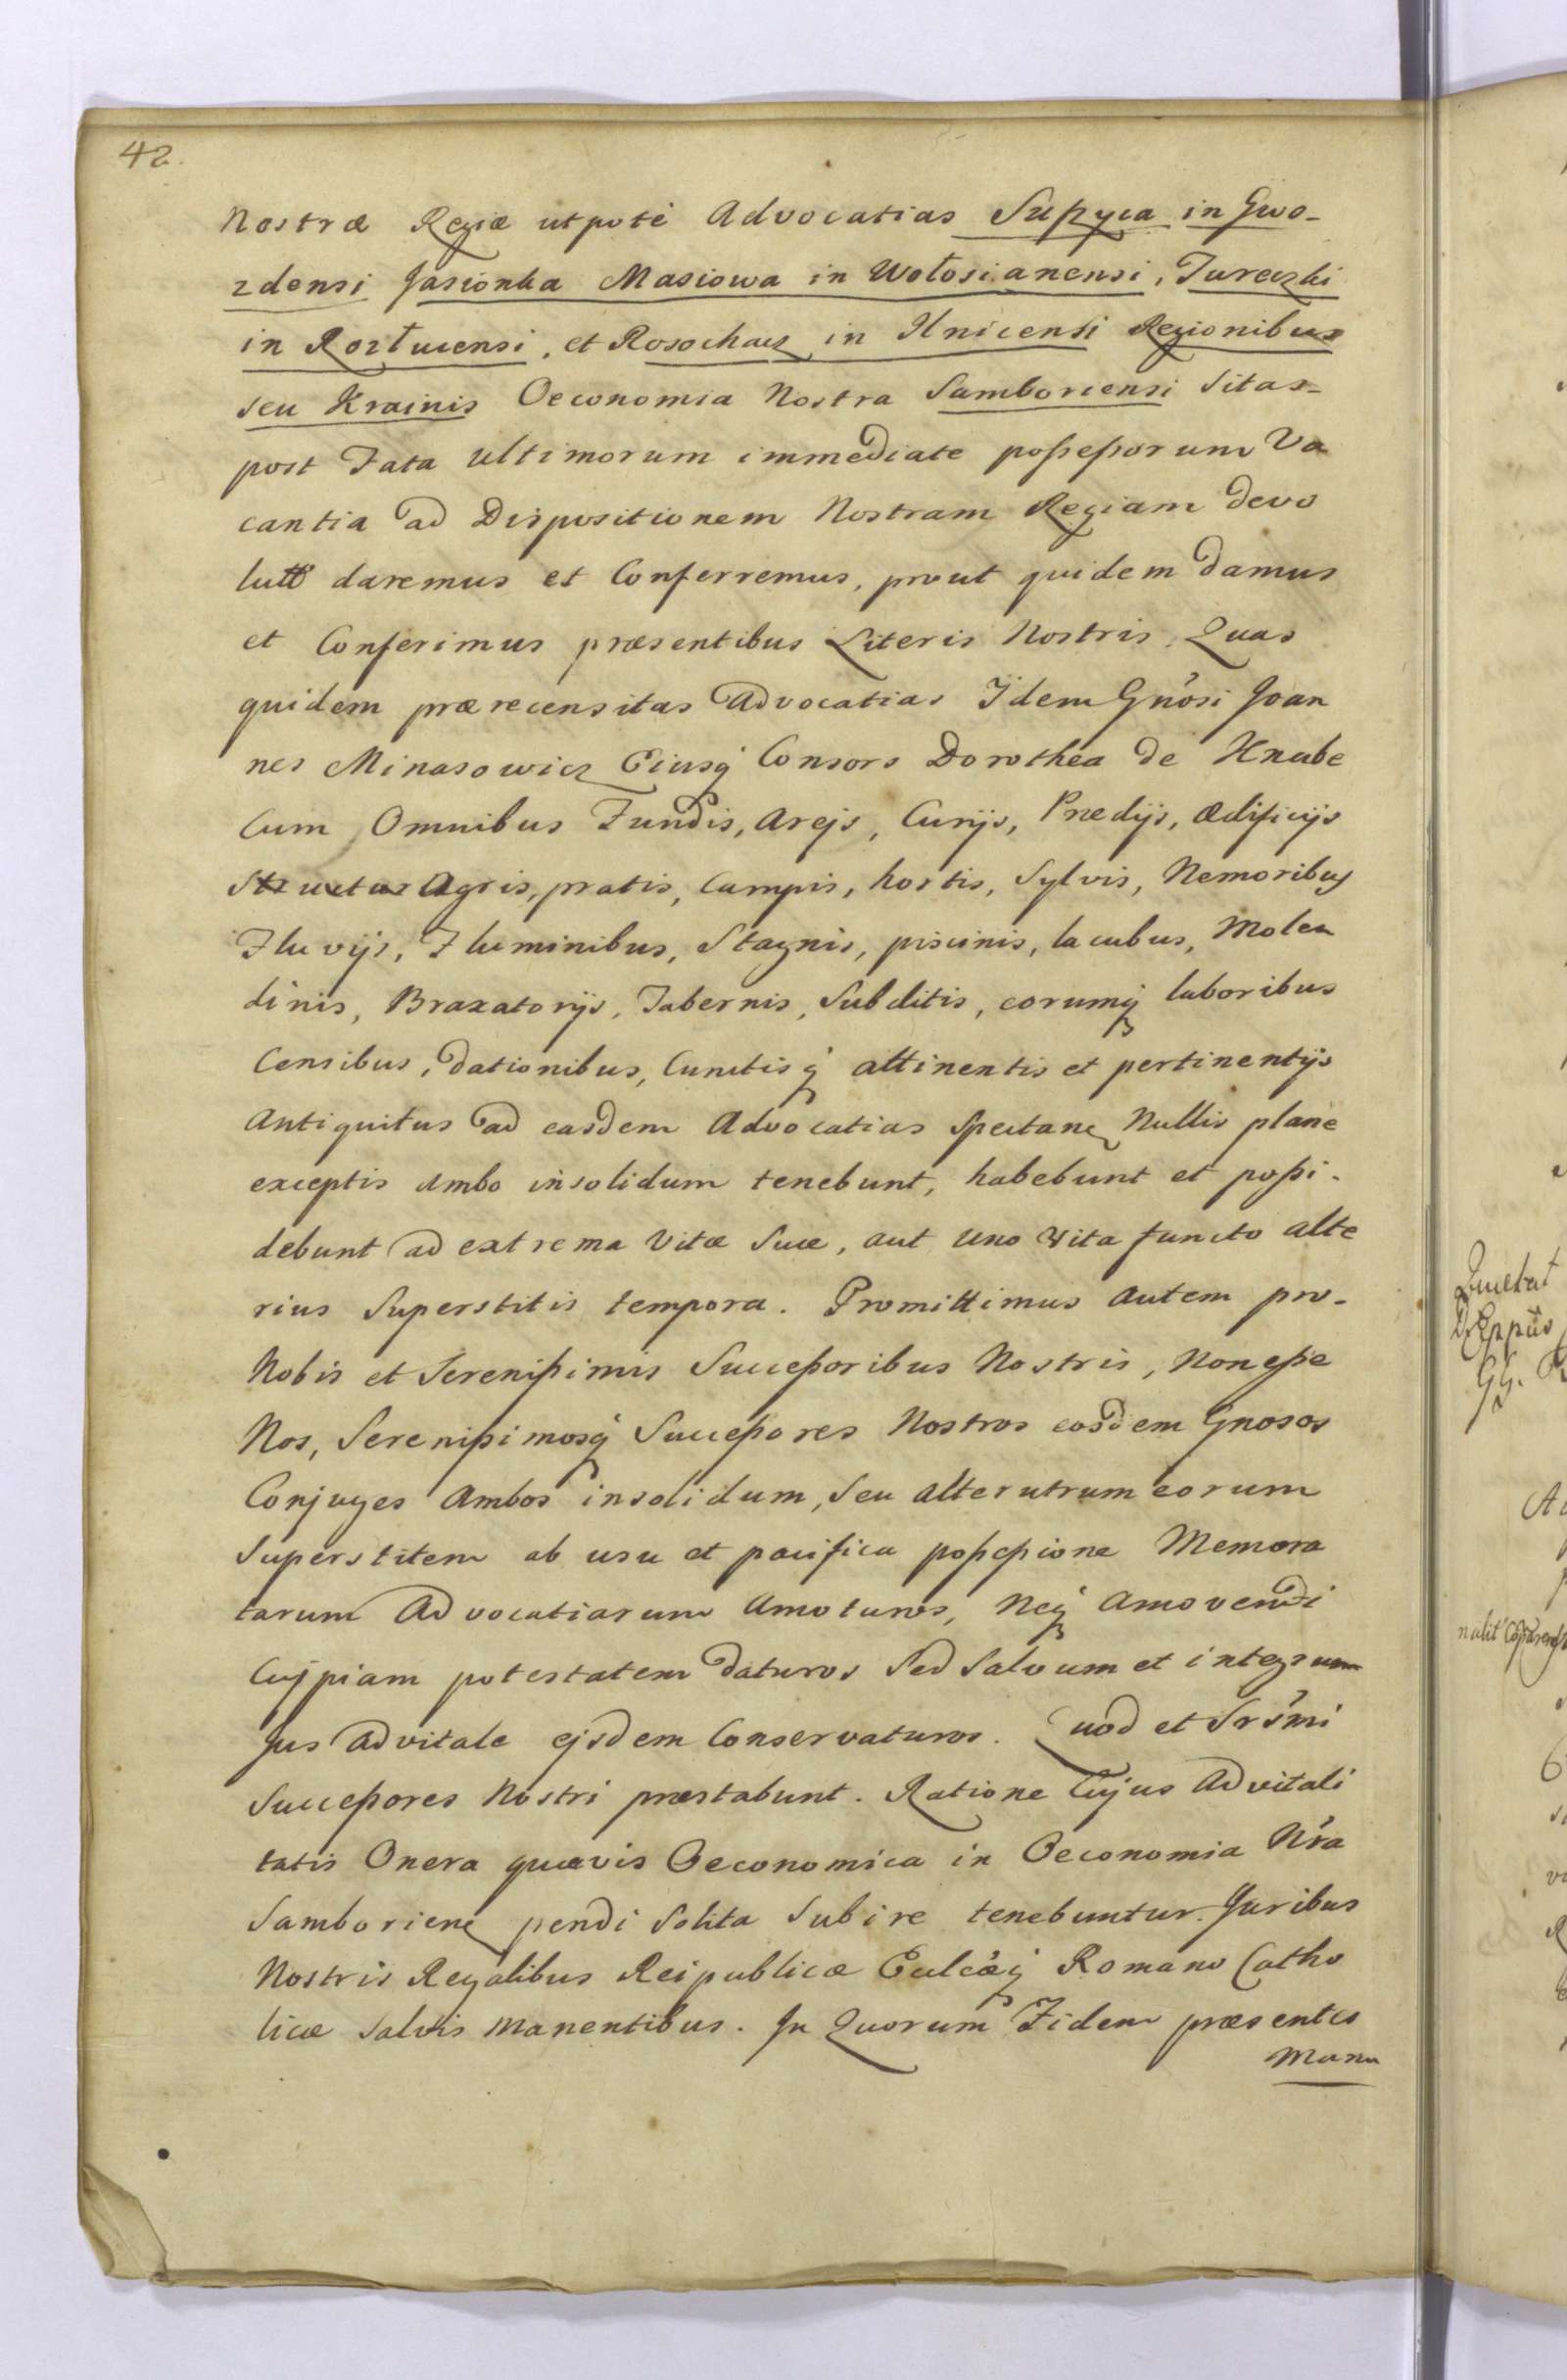 42.
Nostræ Regiæ utpotè Advocatias Supyca in Gwo-
zdensi Jasionka Masiowa in Wołosianensi, Tureczki
in Rozłucensi, et Rosochacz in Ilnicensi Regionibus
seu Krainis Oeconomia Nostra Samboriensi Sitas-
post Fata Ultimorum immediate poßeßorum Va
cantia ad Dispositionem Nostram Regiam devo
lutt daremus et Conferremus, prout quidem damus
et Conferimus præsentibus Literis Nostris. Quas
quidem prærecensitas Advocatias Iidem Gn'osi Joan
nes Minasowicz Eiusq' Consors Dorothea de Knabe
Cum Omnibus Fundis, Arejs, Curijs, Prædijs, ædificijs
Structur Agris, pratis, Campis, hortis, Sylvis, Nemoribus
Fluvijs, Fluminibus, Stagnis, piscinis, lacubus, Molen
dinis, Braxatorijs, Tabernis, Subditis, eorumq' laboribus
Censibus, dationibus, Cunctisq' attinentis et pertinentijs
Antiquitus ad easdem Advocatias Spectanc Nullis plane
exceptis Ambo insolidum tenebunt, habebunt et poßi-
debunt ad extrema Vitæ Suæ, aut Uno Vita functo alte
rius Superstitis tempora. Promittimus Autem pro-
Nobis et Serenißimis Succeßoribus Nostris, Non eße
Nos, Serenißimosq' Succeßores Nostros eosdem Gnosos
Conjuges Ambos insolidum, Seu Alterutrum eorum
Superstitem ab usu et pacifica poßeßione Memora
tarum Advocatiarum Amoturos, Neq' Amovendi
Cujpiam potestatem Daturos Sed Salvum et integrum
Jus Advitale ejsdem Conservaturos. Quod et Srs'mi
Succeßores Nostri præstabunt. Ratione Cujus Advitali
tatis Onera quævis Oeconomica in Oeconomia N'ra
Samborienc pendi Solita Subire tenebuntur. Juribus
Nostris Regalibus Reipublicæ Eulcæq' Romano Catho
licæ Salvis manentibus. In Quorum Fidem præsentes
Manu